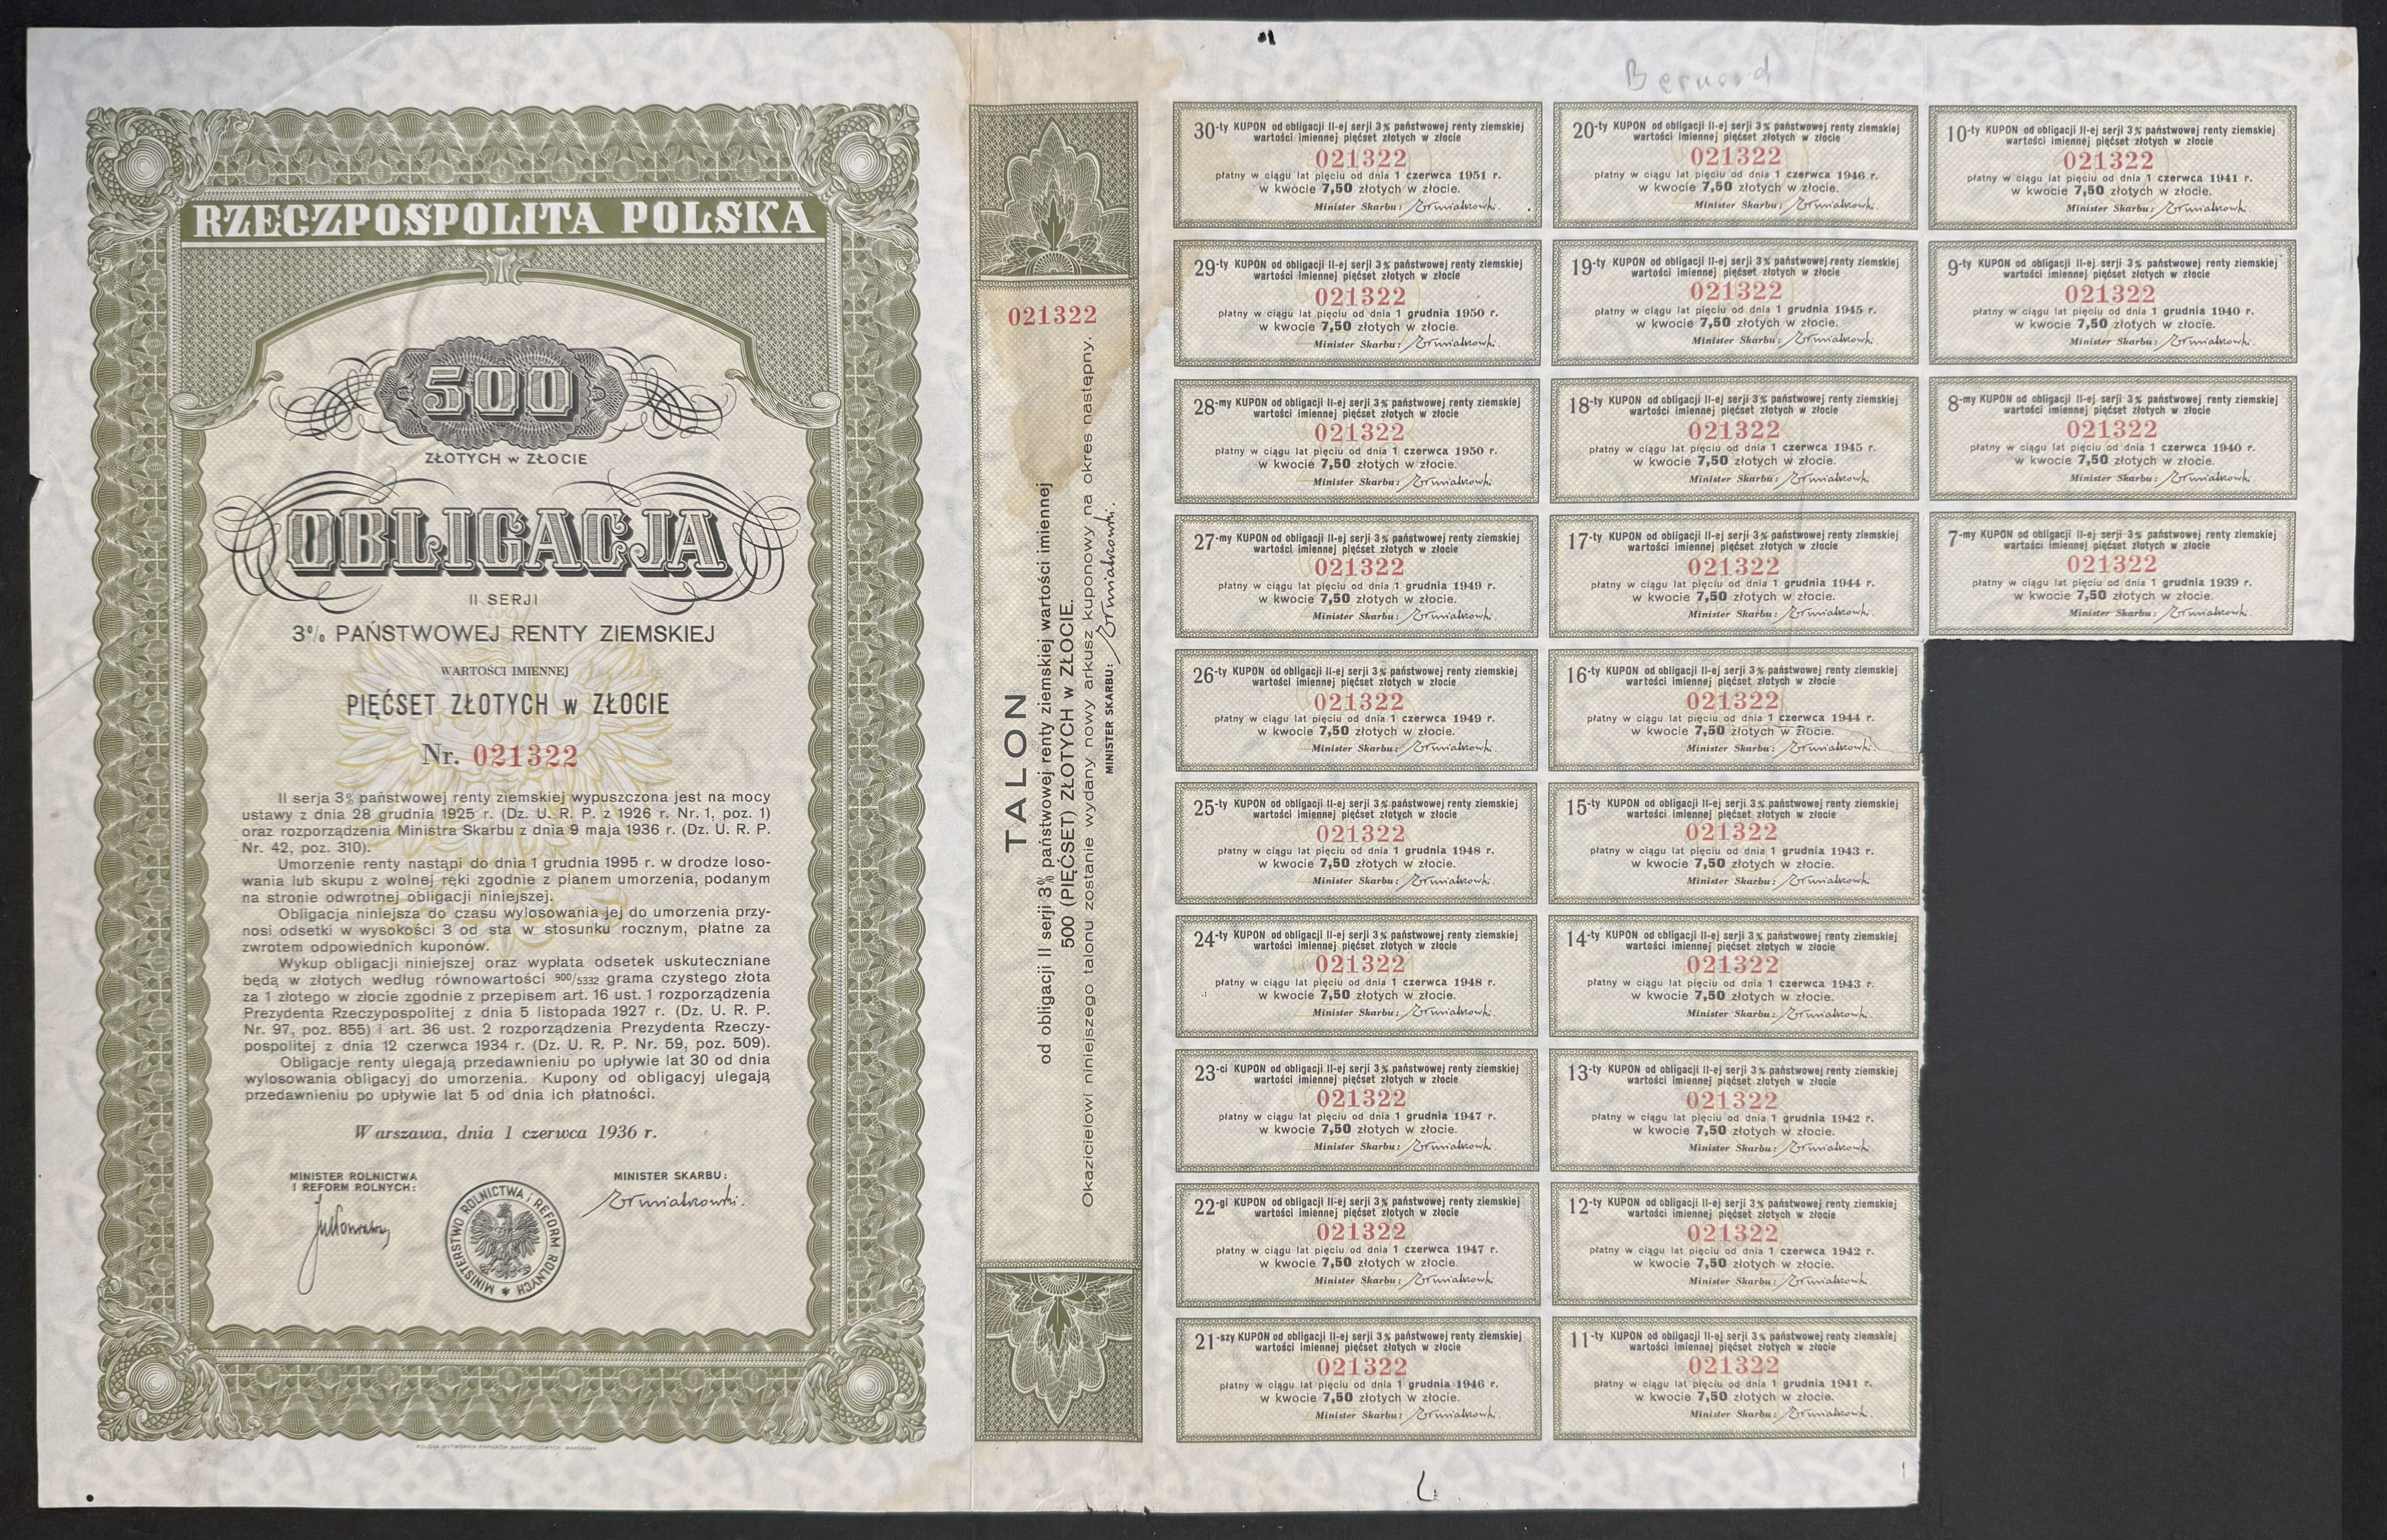 RZECZPOSPOLITA POLSKA
500
ZŁOTYCH w ZŁOCIE
OBLIGACJA
II SERJI
3% PAŃSTWOWEJ RENTY ZIEMSKIEJ
WARTOŚCI IMIENNEJ
PIĘĆSET ZŁOTYCH w ZŁOCIE
Nr. 021322
II serja 3% państwowej renty ziemskiej wypuszczona jest na mocy
ustawy z dnia 28 grudnia 1925 r. (Dz. U. R. P. z 1926 r. Nr. 1, poz. 1)
oraz rozporządzenia Ministra Skarbu z dnia 9 maja 1936 r. (Dz. U. R. P.
Nr. 42, poz. 310).
Umorzenie renty nastąpi do dnia 1 grudnia 1995 r. w drodze loso-
wania lub skupu z wolnej ręki zgodnie z planem umorzenia, podanym
na stronie odwrotnej obligacji niniejszej.
Obligacja niniejsza do czasu wylosowania jej do umorzenia przy-
nosi odsetki w wysokości 3 od sta w stosunku rocznym, płatne za
zwrotem odpowiednich kuponów.
Wykup obligacji niniejszej oraz wypłata odsetek uskuteczniane
będą w złotych według równowartości 900/5332 grama czystego złota
za 1 złotego w złocie zgodnie z przepisem art. 16 ust. 1 rozporządzenia
Prezydenta Rzeczypospolitej z dnia 5 listopada 1927 r. (Dz. U. R. P.
Nr. 97, poz. 855) i art. 36 ust. 2 rozporządzenia Prezydenta Rzeczy-
pospolitej z dnia 12 czerwca 1934 r. (Dz. U. R. P. Nr. 59, poz. 509).
Obligacje renty ulegają przedawnieniu po upływie lat 30 od dnia
wylosowania obligacyj do umorzenia. Kupony od obligacyj ulegają
przedawnieniu po upływie lat 5 od dnia ich płatności.
Warszawa, dnia 1 czerwca 1936 r.
MINISTER ROLNICTWA
I REFORM ROLNYCH:
MINISTER SKARBU:
MINISTERSTWO ROLNICTWA i REFORM ROLNYCH
POLSKA WYTWÓRNIA PAPIERÓW WARTOŚCIOWYCH, WARSZAWA
021322
TALON
od obligacji II serji 3% państwowej renty ziemskiej wartości imiennej
500 (PIĘĆSET) ZŁOTYCH w ZŁOCIE.
Okazicielowi niniejszego talonu zostanie wydany nowy arkusz kuponowy na okres następny.
MINISTER SKARBU:
Bernard
30-ty KUPON od obligacji II-ej serji 3% państwowej renty ziemskiej
wartości imiennej pięćset złotych w złocie
021322
płatny w ciągu lat pięciu od dnia 1 czerwca 1951 r.
w kwocie 7,50 złotych w złocie.
Minister Skarbu:
29-ty KUPON od obligacji II-ej serji 3% państwowej renty ziemskiej
wartości imiennej pięćset złotych w złocie
021322
płatny w ciągu lat pięciu od dnia 1 grudnia 1950 r.
w kwocie 7,50 złotych w złocie.
Minister Skarbu:
28-my KUPON od obligacji II-ej serji 3% państwowej renty ziemskiej
wartości imiennej pięćset złotych w złocie
021322
płatny w ciągu lat pięciu od dnia 1 czerwca 1950 r.
w kwocie 7,50 złotych w złocie.
Minister Skarbu:
27-my KUPON od obligacji II-ej serji 3% państwowej renty ziemskiej
wartości imiennej pięćset złotych w złocie
021322
płatny w ciągu lat pięciu od dnia 1 grudnia 1949 r.
w kwocie 7,50 złotych w złocie.
Minister Skarbu:
26-ty KUPON od obligacji II-ej serji 3% państwowej renty ziemskiej
wartości imiennej pięćset złotych w złocie
021322
płatny w ciągu lat pięciu od dnia 1 czerwca 1949 r.
w kwocie 7,50 złotych w złocie.
Minister Skarbu:
25-ty KUPON od obligacji II-ej serji 3% państwowej renty ziemskiej
wartości imiennej pięćset złotych w złocie
021322
płatny w ciągu lat pięciu od dnia 1 grudnia 1948 r.
w kwocie 7,50 złotych w złocie.
Minister Skarbu:
24-ty KUPON od obligacji II-ej serji 3% państwowej renty ziemskiej
wartości imiennej pięćset złotych w złocie
021322
płatny w ciągu lat pięciu od dnia 1 czerwca 1948 r.
w kwocie 7,50 złotych w złocie.
Minister Skarbu:
23-ci KUPON od obligacji II-ej serji 3% państwowej renty ziemskiej
wartości imiennej pięćset złotych w złocie
021322
płatny w ciągu lat pięciu od dnia 1 grudnia 1947 r.
w kwocie 7,50 złotych w złocie.
Minister Skarbu:
22-gi KUPON od obligacji II-ej serji 3% państwowej renty ziemskiej
wartości imiennej pięćset złotych w złocie
021322
płatny w ciągu lat pięciu od dnia 1 czerwca 1947 r.
w kwocie 7,50 złotych w złocie.
Minister Skarbu:
21-szy KUPON od obligacji II-ej serji 3% państwowej renty ziemskiej
wartości imiennej pięćset złotych w złocie
021322
płatny w ciągu lat pięciu od dnia 1 grudnia 1946 r.
w kwocie 7,50 złotych w złocie.
Minister Skarbu:
20-ty KUPON od obligacji II-ej serji 3% państwowej renty ziemskiej
wartości imiennej pięćset złotych w złocie
021322
płatny w ciągu lat pięciu od dnia 1 czerwca 1946 r.
w kwocie 7,50 złotych w złocie.
Minister Skarbu:
19-ty KUPON od obligacji II-ej serji 3% państwowej renty ziemskiej
wartości imiennej pięćset złotych w złocie
021322
płatny w ciągu lat pięciu od dnia 1 grudnia 1945 r.
w kwocie 7,50 złotych w złocie.
Minister Skarbu:
18-ty KUPON od obligacji II-ej serji 3% państwowej renty ziemskiej
wartości imiennej pięćset złotych w złocie
021322
płatny w ciągu lat pięciu od dnia 1 czerwca 1945 r.
w kwocie 7,50 złotych w złocie.
Minister Skarbu:
17-ty KUPON od obligacji II-ej serji 3% państwowej renty ziemskiej
wartości imiennej pięćset złotych w złocie
021322
płatny w ciągu lat pięciu od dnia 1 grudnia 1944 r.
w kwocie 7,50 złotych w złocie.
Minister Skarbu:
16-ty KUPON od obligacji II-ej serji 3% państwowej renty ziemskiej
wartości imiennej pięćset złotych w złocie
021322
płatny w ciągu lat pięciu od dnia 1 czerwca 1944 r.
w kwocie 7,50 złotych w złocie.
Minister Skarbu:
15-ty KUPON od obligacji II-ej serji 3% państwowej renty ziemskiej
wartości imiennej pięćset złotych w złocie
021322
płatny w ciągu lat pięciu od dnia 1 grudnia 1943 r.
w kwocie 7,50 złotych w złocie.
Minister Skarbu:
14-ty KUPON od obligacji II-ej serji 3% państwowej renty ziemskiej
wartości imiennej pięćset złotych w złocie
021322
płatny w ciągu lat pięciu od dnia 1 czerwca 1943 r.
w kwocie 7,50 złotych w złocie.
Minister Skarbu:
13-ty KUPON od obligacji II-ej serji 3% państwowej renty ziemskiej
wartości imiennej pięćset złotych w złocie
021322
płatny w ciągu lat pięciu od dnia 1 grudnia 1942 r.
w kwocie 7,50 złotych w złocie.
Minister Skarbu:
12-ty KUPON od obligacji II-ej serji 3% państwowej renty ziemskiej
wartości imiennej pięćset złotych w złocie
021322
płatny w ciągu lat pięciu od dnia 1 czerwca 1942 r.
w kwocie 7,50 złotych w złocie.
Minister Skarbu:
11-ty KUPON od obligacji II-ej serji 3% państwowej renty ziemskiej
wartości imiennej pięćset złotych w złocie
021322
płatny w ciągu lat pięciu od dnia 1 grudnia 1941 r.
w kwocie 7,50 złotych w złocie.
Minister Skarbu:
10-ty KUPON od obligacji II-ej serji 3% państwowej renty ziemskiej
wartości imiennej pięćset złotych w złocie
021322
płatny w ciągu lat pięciu od dnia 1 czerwca 1941 r.
w kwocie 7,50 złotych w złocie.
Minister Skarbu:
9-ty KUPON od obligacji II-ej serji 3% państwowej renty ziemskiej
wartości imiennej pięćset złotych w złocie
021322
płatny w ciągu lat pięciu od dnia 1 grudnia 1940 r.
w kwocie 7,50 złotych w złocie.
Minister Skarbu:
8-my KUPON od obligacji II-ej serji 3% państwowej renty ziemskiej
wartości imiennej pięćset złotych w złocie
021322
płatny w ciągu lat pięciu od dnia 1 czerwca 1940 r.
w kwocie 7,50 złotych w złocie.
Minister Skarbu:
7-my KUPON od obligacji II-ej serji 3% państwowej renty ziemskiej
wartości imiennej pięćset złotych w złocie
021322
płatny w ciągu lat pięciu od dnia 1 grudnia 1939 r.
w kwocie 7,50 złotych w złocie.
Minister Skarbu: